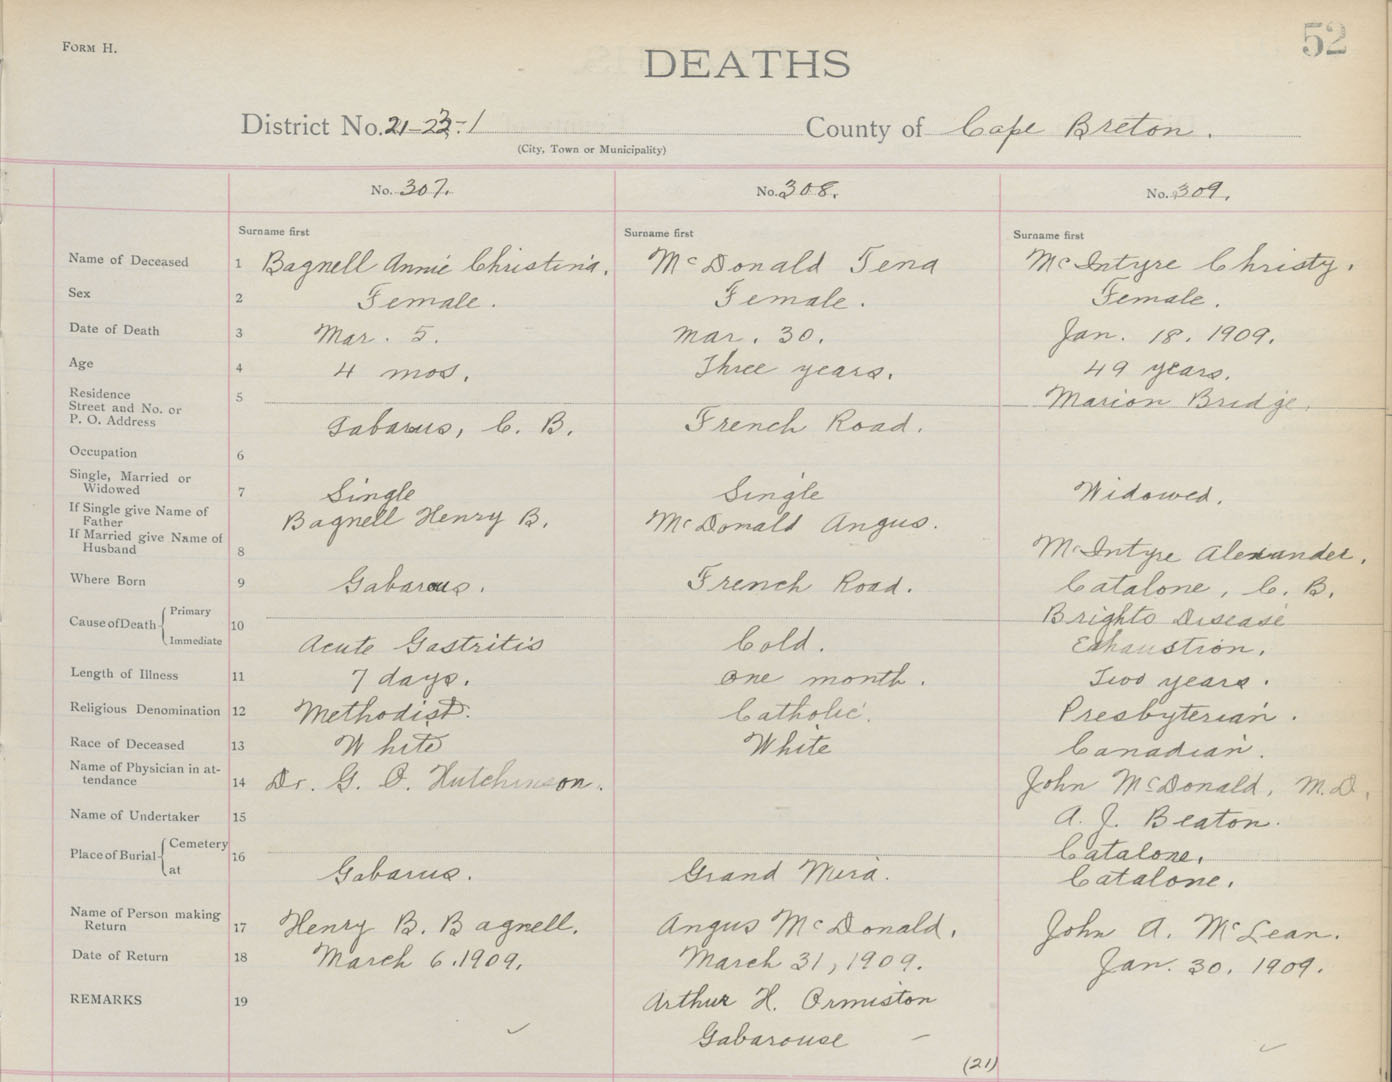 FORM H.
52
DEATHS
District No. 21-23-1 County of Cape Breton.
(City, Town or Municipality)
No. 307. No. 308. No. 309.
Surname first Surname first Surname first
Name of Deceased 1 Bagnell Annie Christina. McDonald Tena McIntyre Christy.
Sex 2 Female. Female. Female.
Date of Death 3 Mar. 5. Mar. 30. Jan. 18. 1909.
Age 4 4 mos. Three years. 49 years.
Residence
Street and No. or
P. O. Address 5 Gabarus, C. B. French Road. Marion Bridge.
Occupation 6
Single, Married or
Widowed 7 Single Single Widowed.
If Single give Name of
Father Bagnell Henry B. McDonald Angus.
If Married give Name of
Husband 8 McIntyre Alexander.
Where Born 9 Gabarous. French Road. Catalone, C. B.
Cause of Death 10 Primary Brights Disease
Immediate Acute Gastritis Cold. Exhaustion.
Length of Illness 11 7 days. One month. Two years.
Religious Denomination 12 Methodist. Catholic. Presbyterian.
Race of Deceased 13 White White Canadian.
Name of Physician in at-
tendance 14 Dr. G. O. Hutchinson. John McDonald, M.D.
Name of Undertaker 15 A. J. Beaton.
Place of Burial 16 Cemetery Catalone.
at Gabarus. Grand Mira. Catalone.
Name of Person making
Return 17 Henry B. Bagnell. Angus McDonald. John A. McLean.
Date of Return 18 March 6. 1909. March 31, 1909. Jan. 30. 1909.
REMARKS 19 Arthur H. Ormiston
Gabarouse
(21)